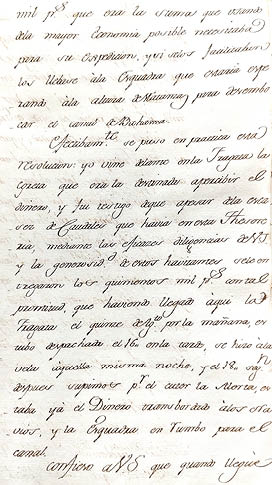 mil p.s que era la suma que usando
dela mayor Economia posible necesitaba
para su expedicion, y si se los facilitaban
los llevase ála Esquadra que estaria espe
rando ála altura de Matanzas para desembo
car el canal de Bahama.
Efectivam.te se puso en practica esta
resolucion: yo vine
que era la destinada apercibir el
dinero, y fui testigo que apesar dela esca
ses de Caudales que havia en esta Thesore
ria, mediante las eficaces diligencias de VS.
y la generosid.d de estos havitantes se le en
tregaron los quinientos mil p.s con tal
puntitud, que haviendo llegado aqui la
Fragata el quince de Ag.to por la mañana, es
tubo despachada el 16 en la tarde, se hizo ála
vela aquella misma noche, y el 18
despues supimos p.r el cuter la Alerta, es
taba yá el Dinero transbordado álos
y la Esquadra en Rumbo para el
canal.
Confieso á VS. que quando llegue